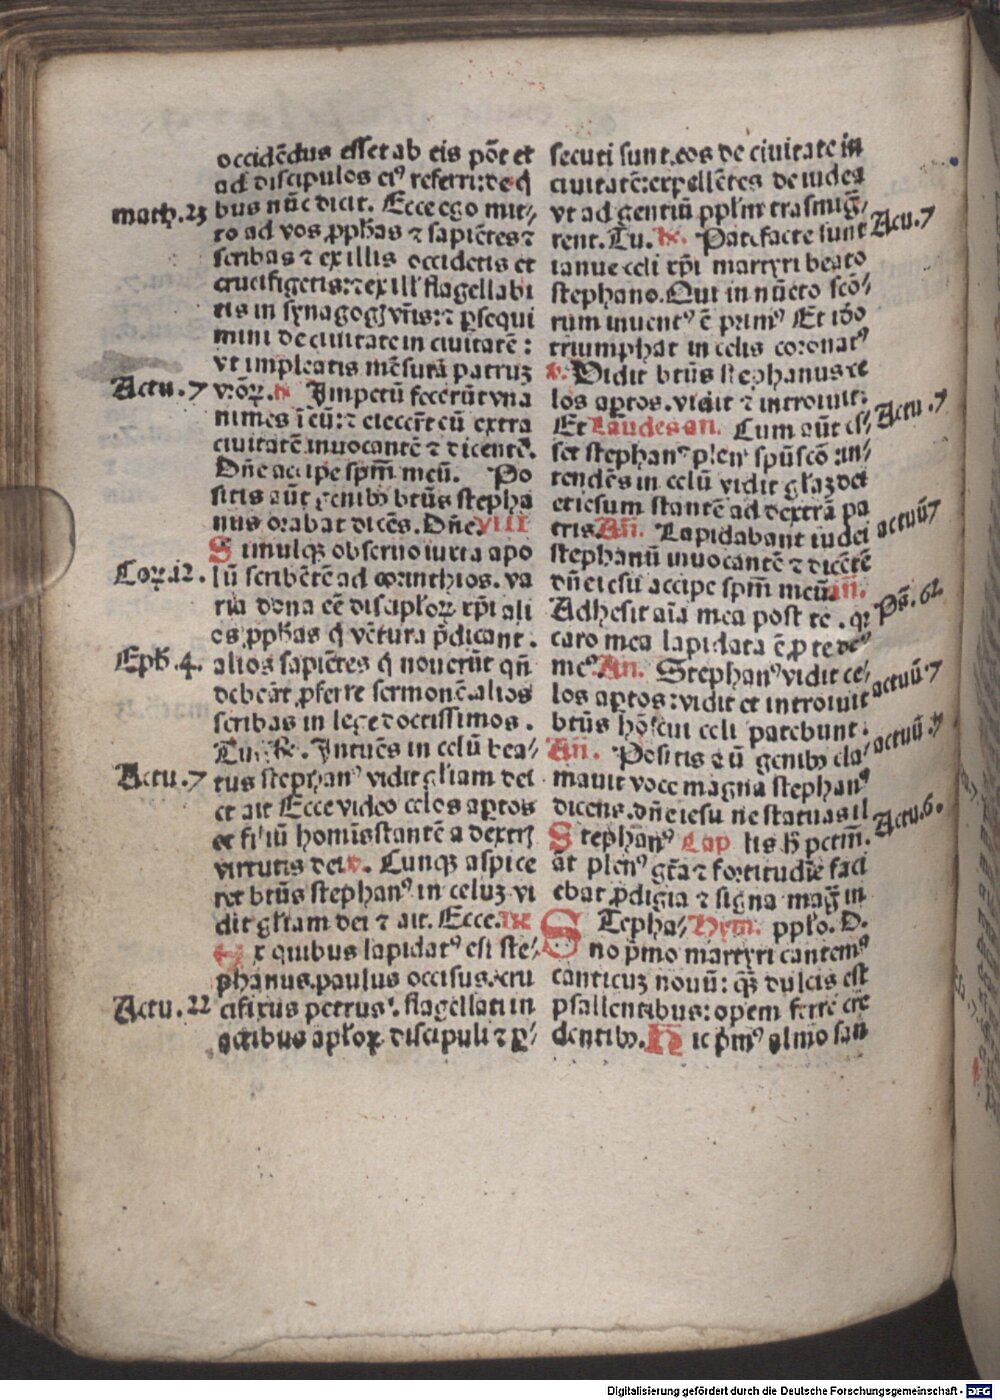 occidēdus esset ab eis pōt et
ad discipulos ei⁹ referri: de q̄
math.23
bus nūc dicit. Ecce ego mit⸗
to ad vos ꝓph̄as ⁊ sapiētes ⁊
scribas ⁊ ex illis occidetis et
crucifigetis: ⁊ ex ill̄ flagellabi
tis in synagogꝭ vr̄is: ⁊ ꝑsequi
mini de ciuitate in ciuitatē:
vt impleatis mēsurā patruꝫ
Actu.7
vr̄oꝝ. ꝶ Impetū fecerūt vna
nimes ī eū: ⁊ eiecer̄t eū extra
ciuitatē inuocantē ⁊ dicentē.
Dn̄e accipe spm̄ meū. Po
sitis aūt genibꝰ btūs stepha
nus orabat dicēs. Dn̄e. VIII
Simulqꝫ obseruo iuxta apo
Coꝝ.12.
lū scribētē ad corinthios. va
ria dona eē discipl̄oꝝ xp̄i ali
os ꝓph̄as q̄ vētura p̄dicant.
Eph.4.
alios sapiētes q̄ nouerūt qn̄
debeāt ꝓferre sermonē. alios
scribas in lege doctissimos.
Tu. ꝶ. Intuēs in celū bea⸗
Actu.7
tus stephan⁹ vidit gl̄iam dei
et ait Ecce video celos aꝑtos
et filiū hominis stantē a dextrꝭ
virtutis dei. v. Cunqꝫ aspice
ret btūs stephan⁹ in celuꝫ vi
dit gl̄iam dei ⁊ ait. Ecce. IX
Ex quibus lapidat⁹ est ste⸗
phanus. paulus occisus. cru
Actu.22
cifixus petrus. flagellati in
actibus apl̄oꝝ discipuli ⁊ ꝑ⸗
secuti sunt. eos de ciuitate in
ciuitatē: expellētes de iudea
vt ad gentiū ppl̄m trāsmig̅⸗
Actu.7
rent. Tu. ꝶ. Patefacte sunt
ianue celi xp̄i martyri beato
stephano. Qui in nūero scō⸗
rum inuent⁹ ē prim⁹ Et iō
triumphat in celis coronat⁹
v. Vidit btūs stephanus ce
los aꝑtos. vidit ⁊ introiuit.
Actu.7
Et Laudes an. Cum aūt es⸗
set stephan⁹ plen⁹ spū scō: in⸗
tendēs in celū vidit gl̄aꝫ dei
et iesum stantē ad dextrā pa
actuū7
tris. Añ. Lapidabant iudei
stephanū inuocantē ⁊ dicētē
dn̄e iesu accipe spm̄ meū. añ.
Ps̄.62
Adhesit aīa mea post te. qꝛ
caro mea lapidata ē ꝓ te de⸗
me⁹. An. Stephan⁹ vidit ce⸗
actuū.7
los aꝑtos: vidit et introiuit
btūs hō cui celi patebunt.
actuū.7
Añ. Positis aū genibꝰ cla⸗
mauit voce magna stephan⁹
dicens. dn̄e iesu ne statuas il
Actu.6.
Stephan̄⁹ Cap lis h̄ pctm̄.
āt plen⁹ gr̄a ⁊ fortitudīe faci
ebat ꝓdigia ⁊ signa mag̅ in
STepha⸗ Hym. ppl̄o. D.
no p̄mo martyri cantem⁹
canticuꝫ nouū: qꝫ dulcis est
psallentibus: opem ferre cre
dentibꝰ. Hic p̄m⁹ almo san
Digitalisierung gefördert durch die Deutsche Forschungsgemeinschaft - DFG